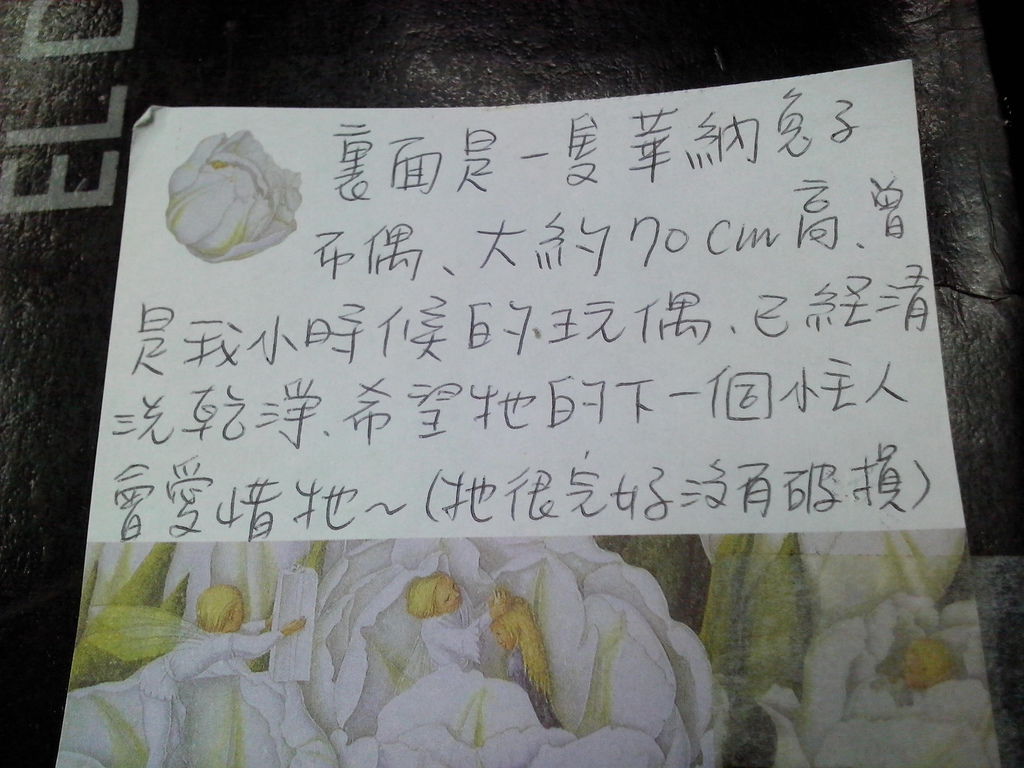 ELD
裏面是一隻華納兔子
布偶、大約70cm高、曾
是我小時候的玩偶、已經清
洗乾淨、希望牠的下一個小主人
會愛惜牠~(牠很完好沒有破損)